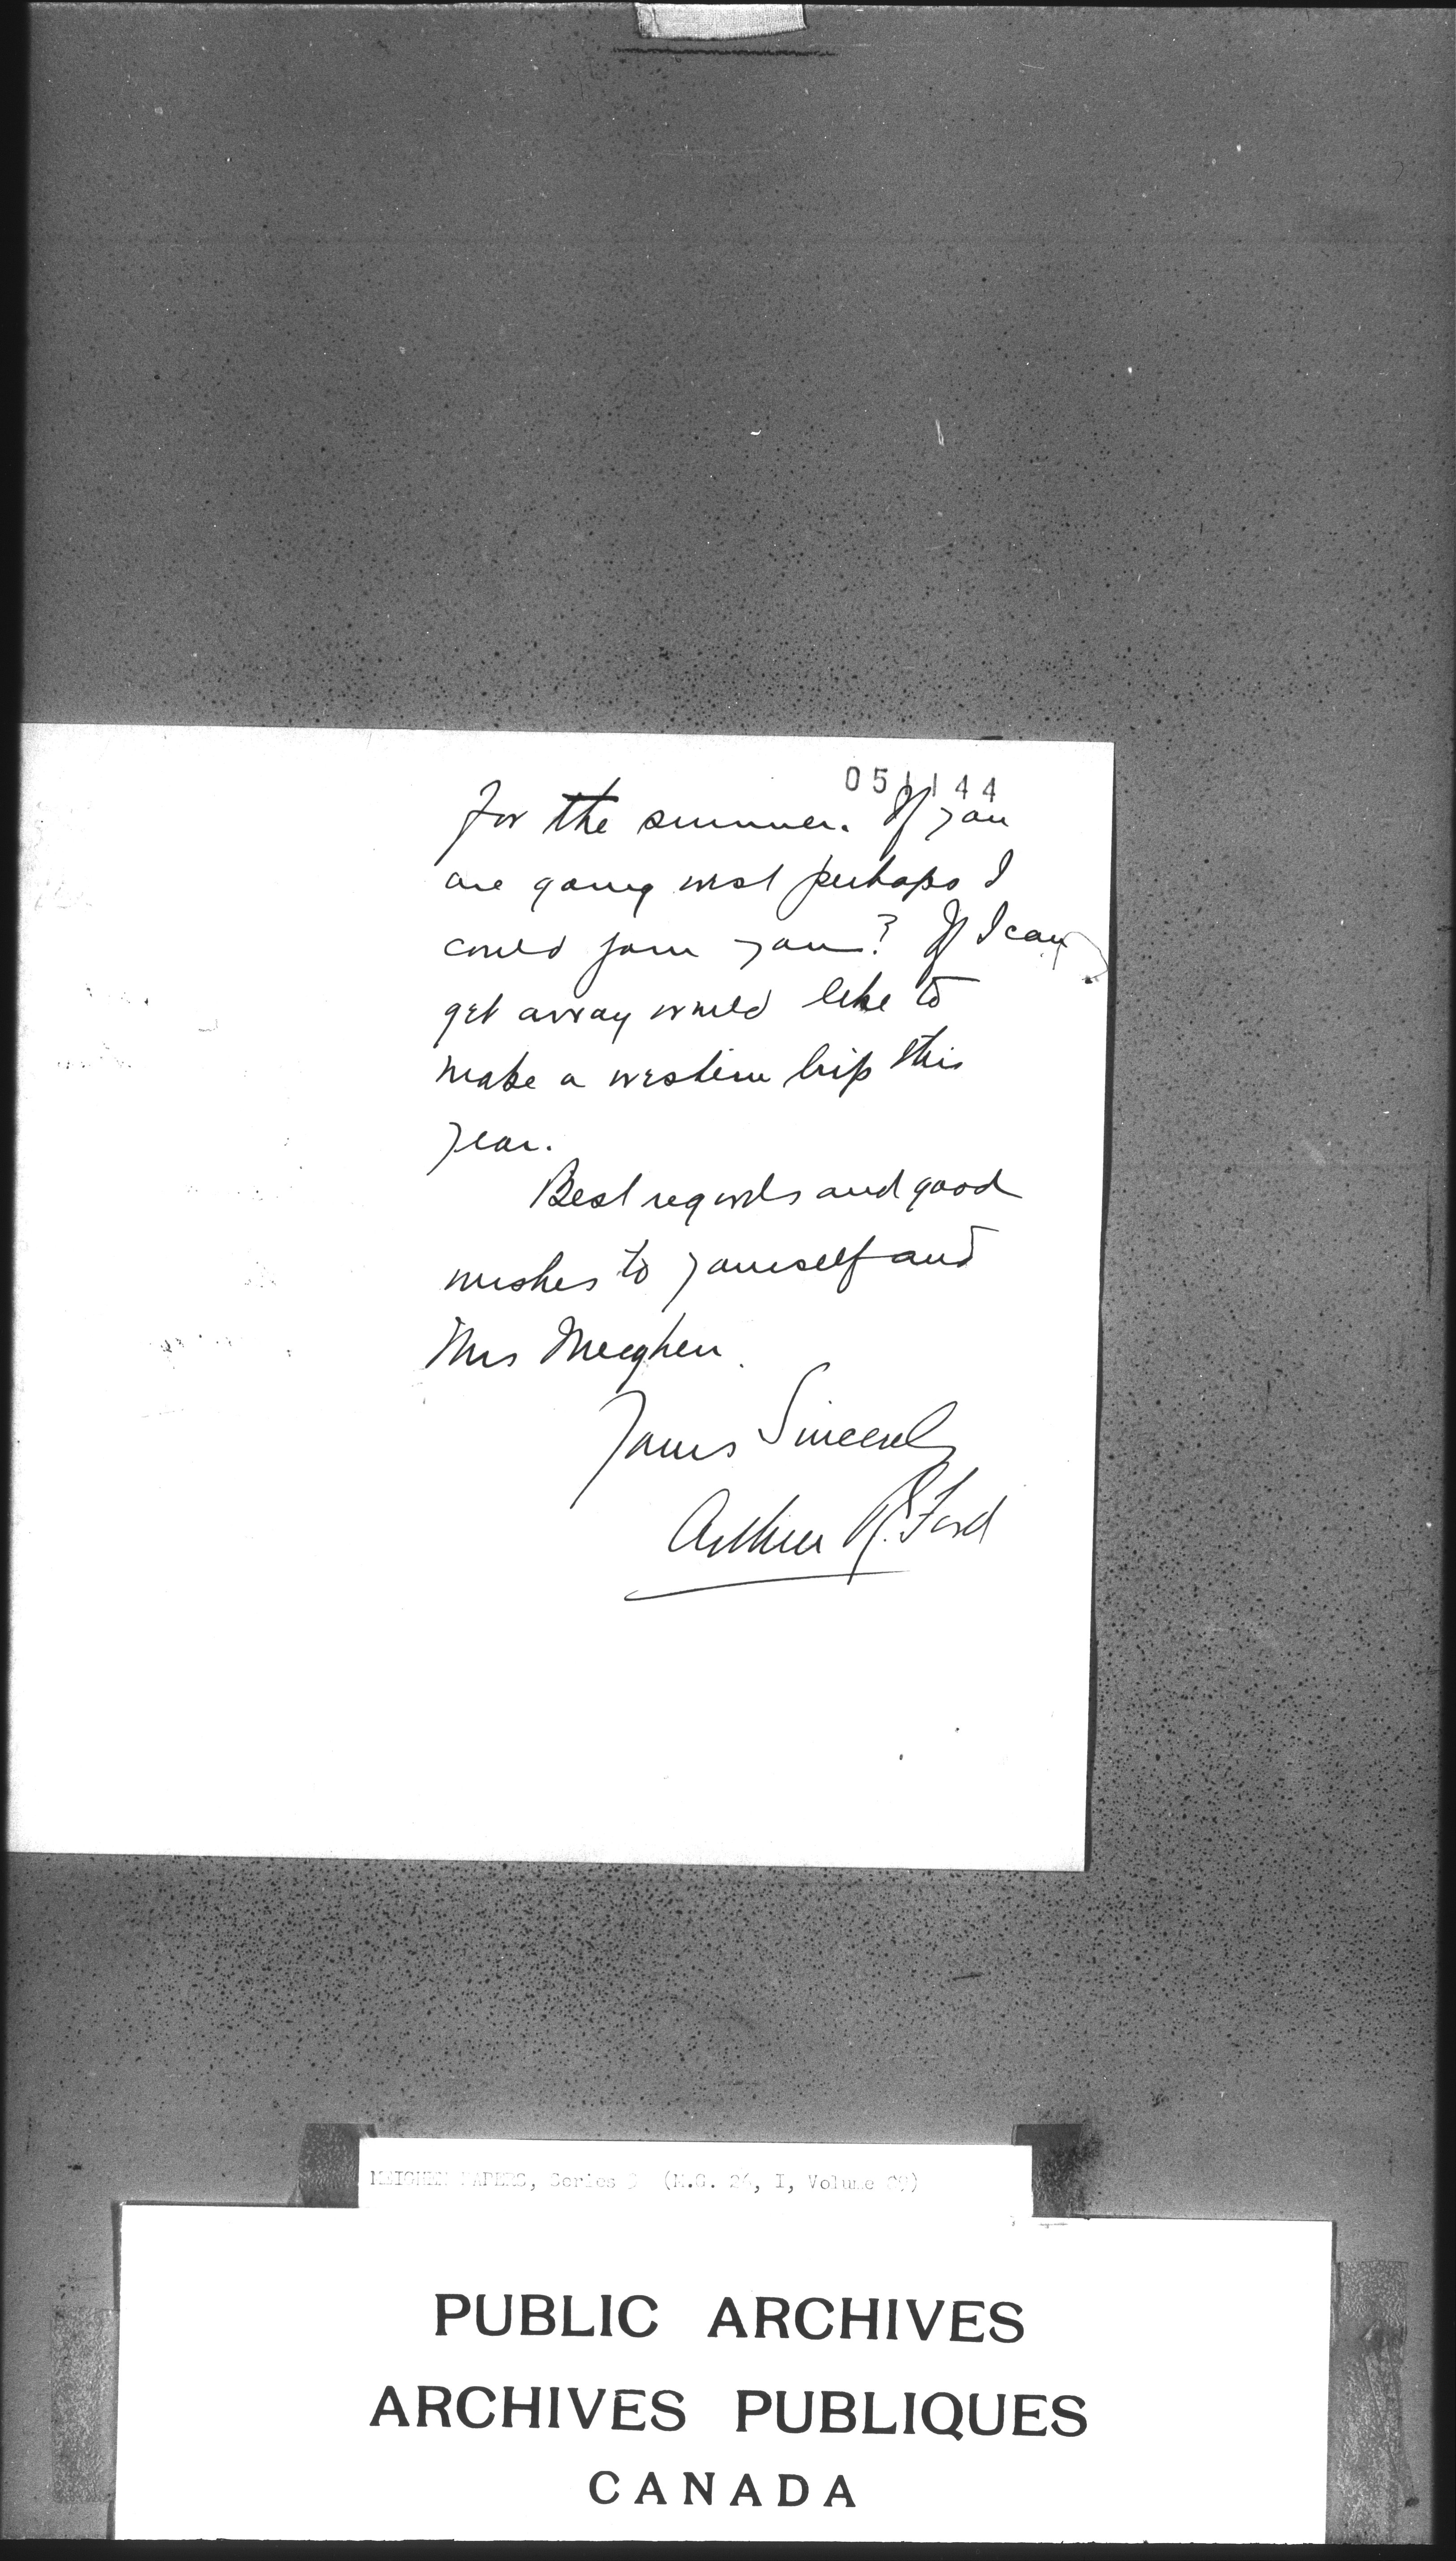 051144
for the summer. If you
are going west perhaps I
could join you? If I can
get away would like to
make a western trip this
year.
Best regards and good
wishes to yourself and
Mrs Meighen.
Yours Sincerely
Arthur R. Ford
MEIGHEN PAPERS, Series (M.G. 26, I, Volume
PUBLIC ARCHIVES
ARCHIVES PUBLIQUES
CANADA